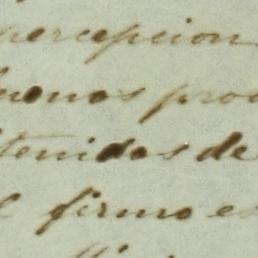 percepcion
buenos pro
tenidos de
firmo es